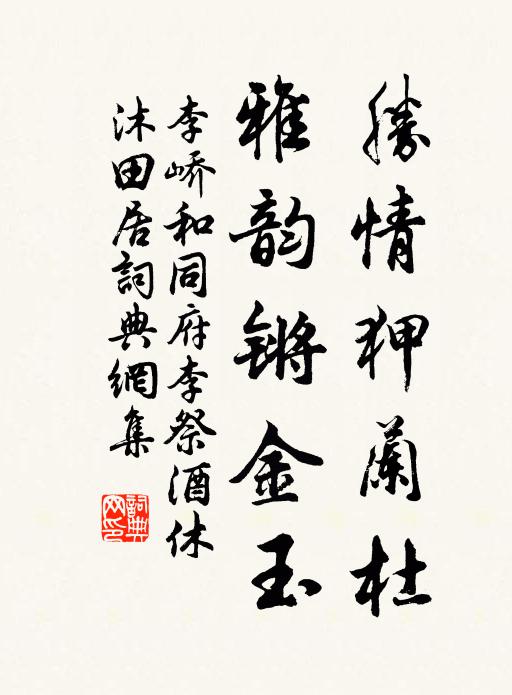 勝情狎蘭杜
雅韵锵金玉
李嶠和同府李祭酒休
沐田居詞典網集
詞典
网印